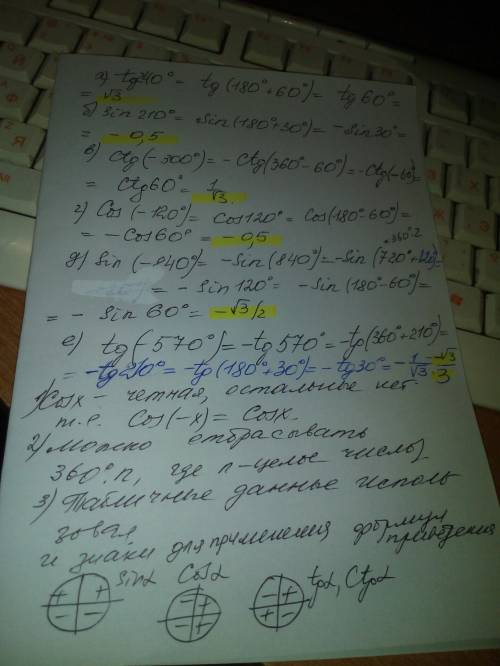 а) tg240° = tg(180°+60°) = tg60° =
= √3
б) Sin210° = Sin(180°+30°) = -Sin30° =
= -0,5
в) Ctg(-300°) = -Ctg(360°-60°) = -Ctg(-60°) =
= Ctg60° = 1/√3.
г) Cos(-120°) = Cos120° = Cos(180°-60°) =
= -Cos60° = -0,5
360°·2
д) Sin(-840°) = -Sin(840°) = -Sin(720°+120°) =
= -Sin120° = -Sin(180°-60°) =
= -Sin60° = -√3/2
е) tg(-570°) = -tg570° = -tg(360°+210°) =
= -tg210° = -tg(180°+30°) = -tg30° = -1/√3 = -√3/3
1) Cosx - четная, остальные нет.
т.е. Cos(-x) = Cosx.
2) Можно отбрасывать
360°·n, где n-целые числа).
3) Табличные данные исполь
зовал
и знаки для применения формул
приведения
Sinα Cosα tgα, Ctgα
+ + - + - +
- - - + + -